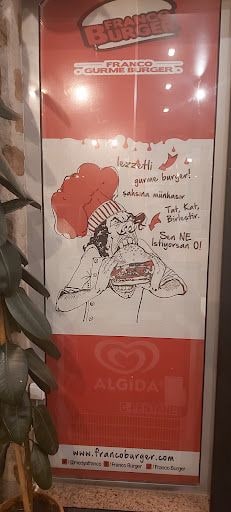 FRANCO
BURGER
FRANCO
GURME BURGER
lezzetli
gurme burger!
şahsına münhasır
Tat, Kat,
Birleştir.
Sen NE
İstiyorsan O!
ALGIDA
www.francoburger.com
Franco Burger
Franco Burger